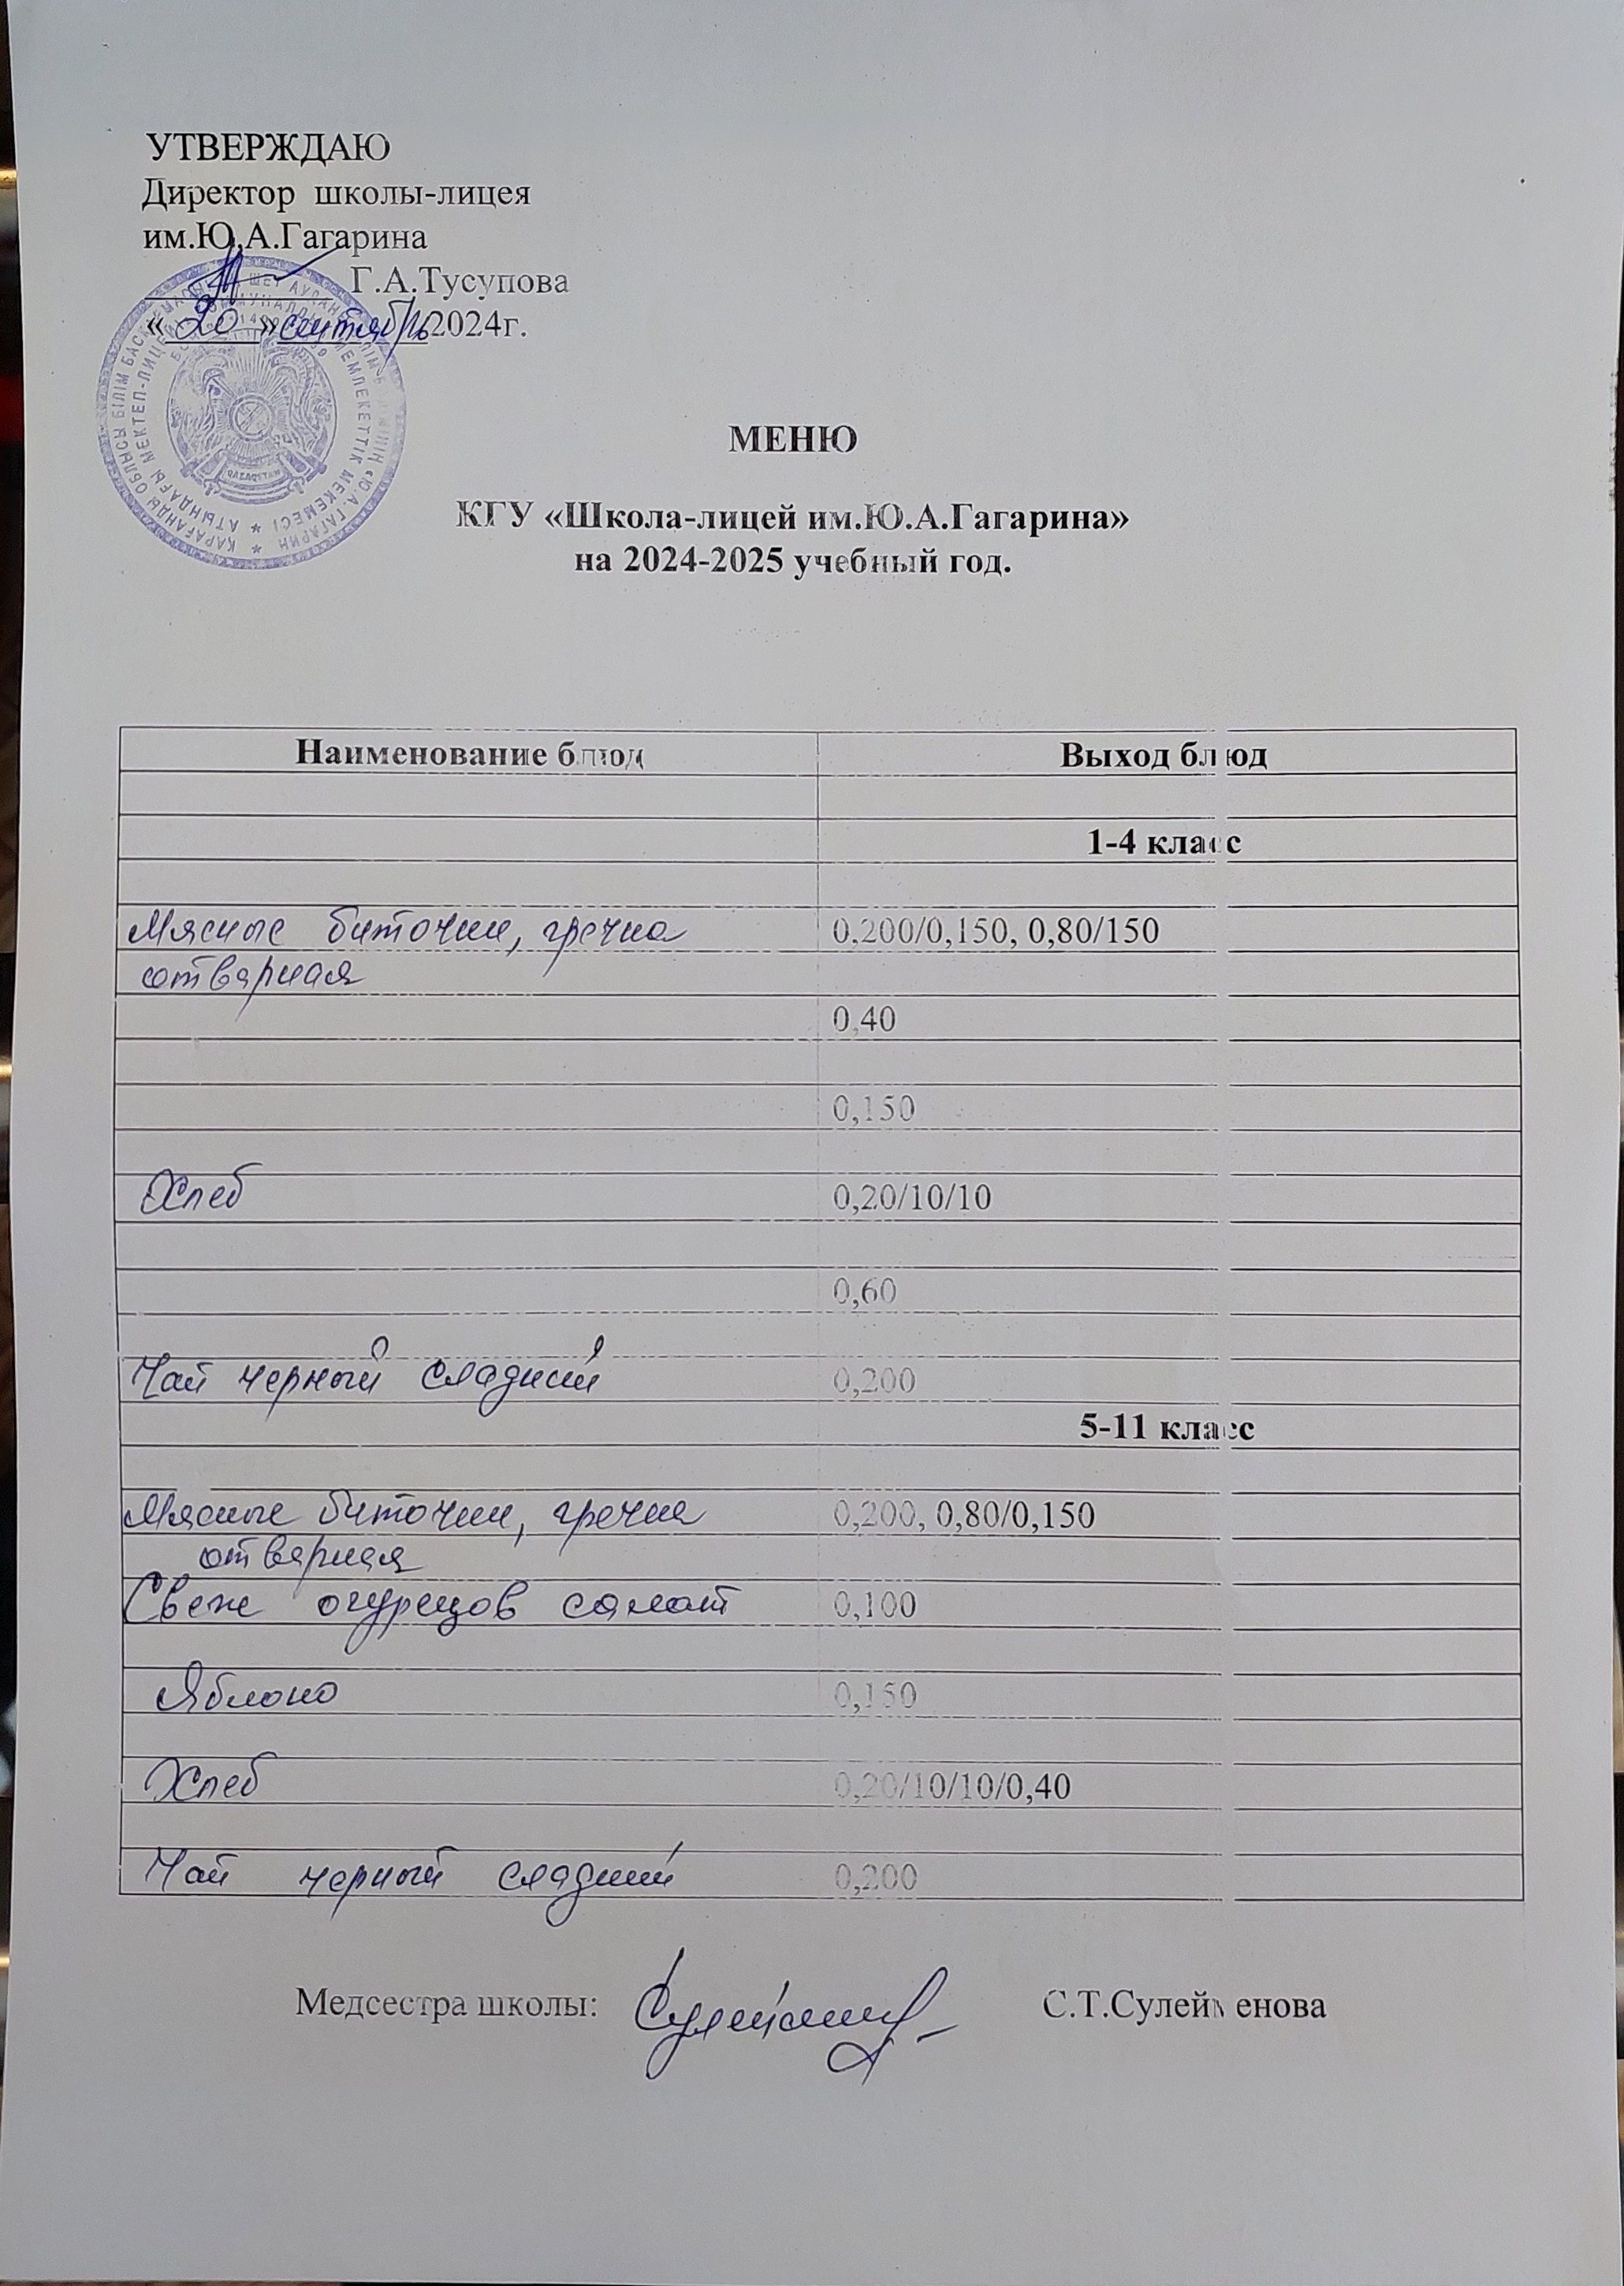 УТВЕРЖДАЮ
Директор школы-лицея
им.Ю.А.Гагарина
Г.А.Тусупова
«20» сентябрь 2024г.
МЕНЮ
КГУ «Школа-лицей им.Ю.А.Гагарина»
на 2024-2025 учебный год.
Наименование блюд Выход блюд
1-4 класс
Мясные биточки, гречка 0,200/0,150, 0,80/150
отварная
0,40
0,150
Хлеб 0,20/10/10
0,60
Чай черный сладкий 0,200
5-11 класс
Мясные биточки, гречка 0,200, 0,80/0,150
отварная
Свеже огурецов салат 0,100
Яблоко 0,150
Хлеб 0,20/10/10/0,40
Чай черный сладкий 0,200
Медсестра школы: С.Т.Сулейменова